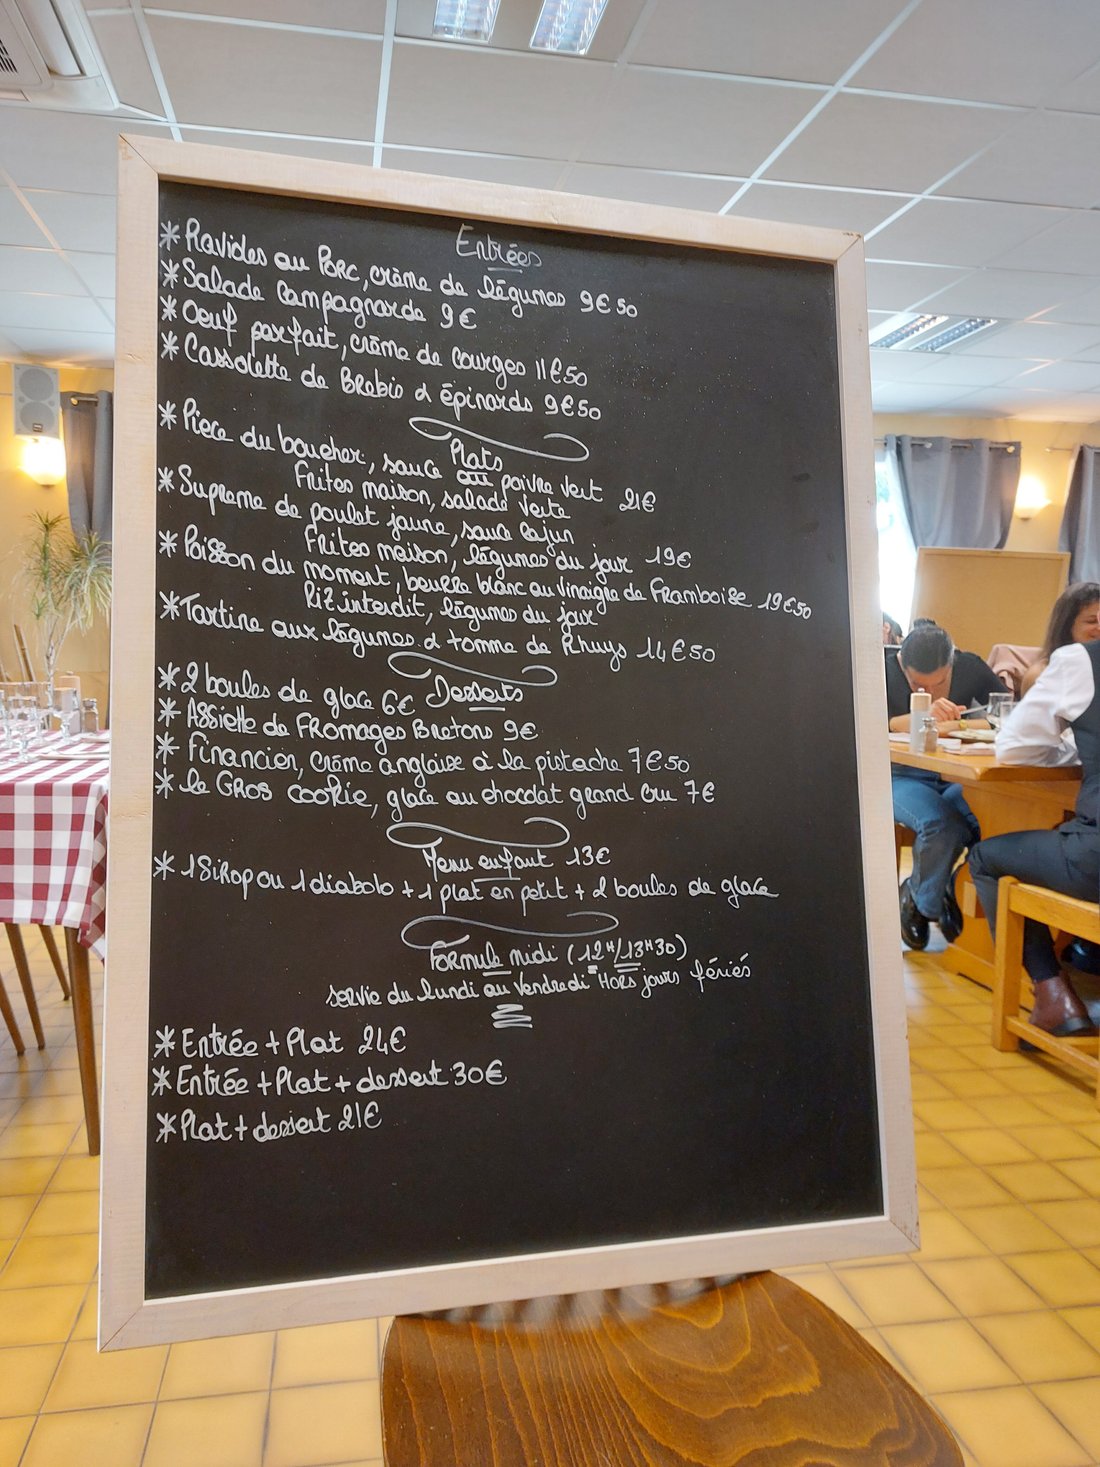 Entrées
* Ravioles au Porc, crème de légumes 9€50
* Salade Campagnarde 9€
* Oeuf parfait, crème de courges 11€50
* Cassolette de Brebis & épinards 9€50
Plats
* Pièce du boucher, sauce au poivre vert 21€
Frites maison, salade verte
* Supreme de poulet jaune, sauce cajun
Frites maison, légumes du jour 19€
* Poisson du moment, beurre blanc au vinaigre de Framboise 19€50
Riz interdit, légumes du jour
* Tartine aux légumes & tomme de Rhuys 14€50
Desserts
* 2 boules de glace 6€
* Assiette de Fromages Bretons 9€
* Financier, crème anglaise à la pistache 7€50
* Le GROS cookie, glace au chocolat grand cru 7€
Menu enfant 13€
* 1 Sirop ou 1 diabolo + 1 plat en petit + 2 boules de glace
Formule midi (12H/13H30)
servie du lundi au Vendredi Hors jours fériés
* Entrée + Plat 24€
* Entrée + Plat + dessert 30€
* Plat + dessert 21€